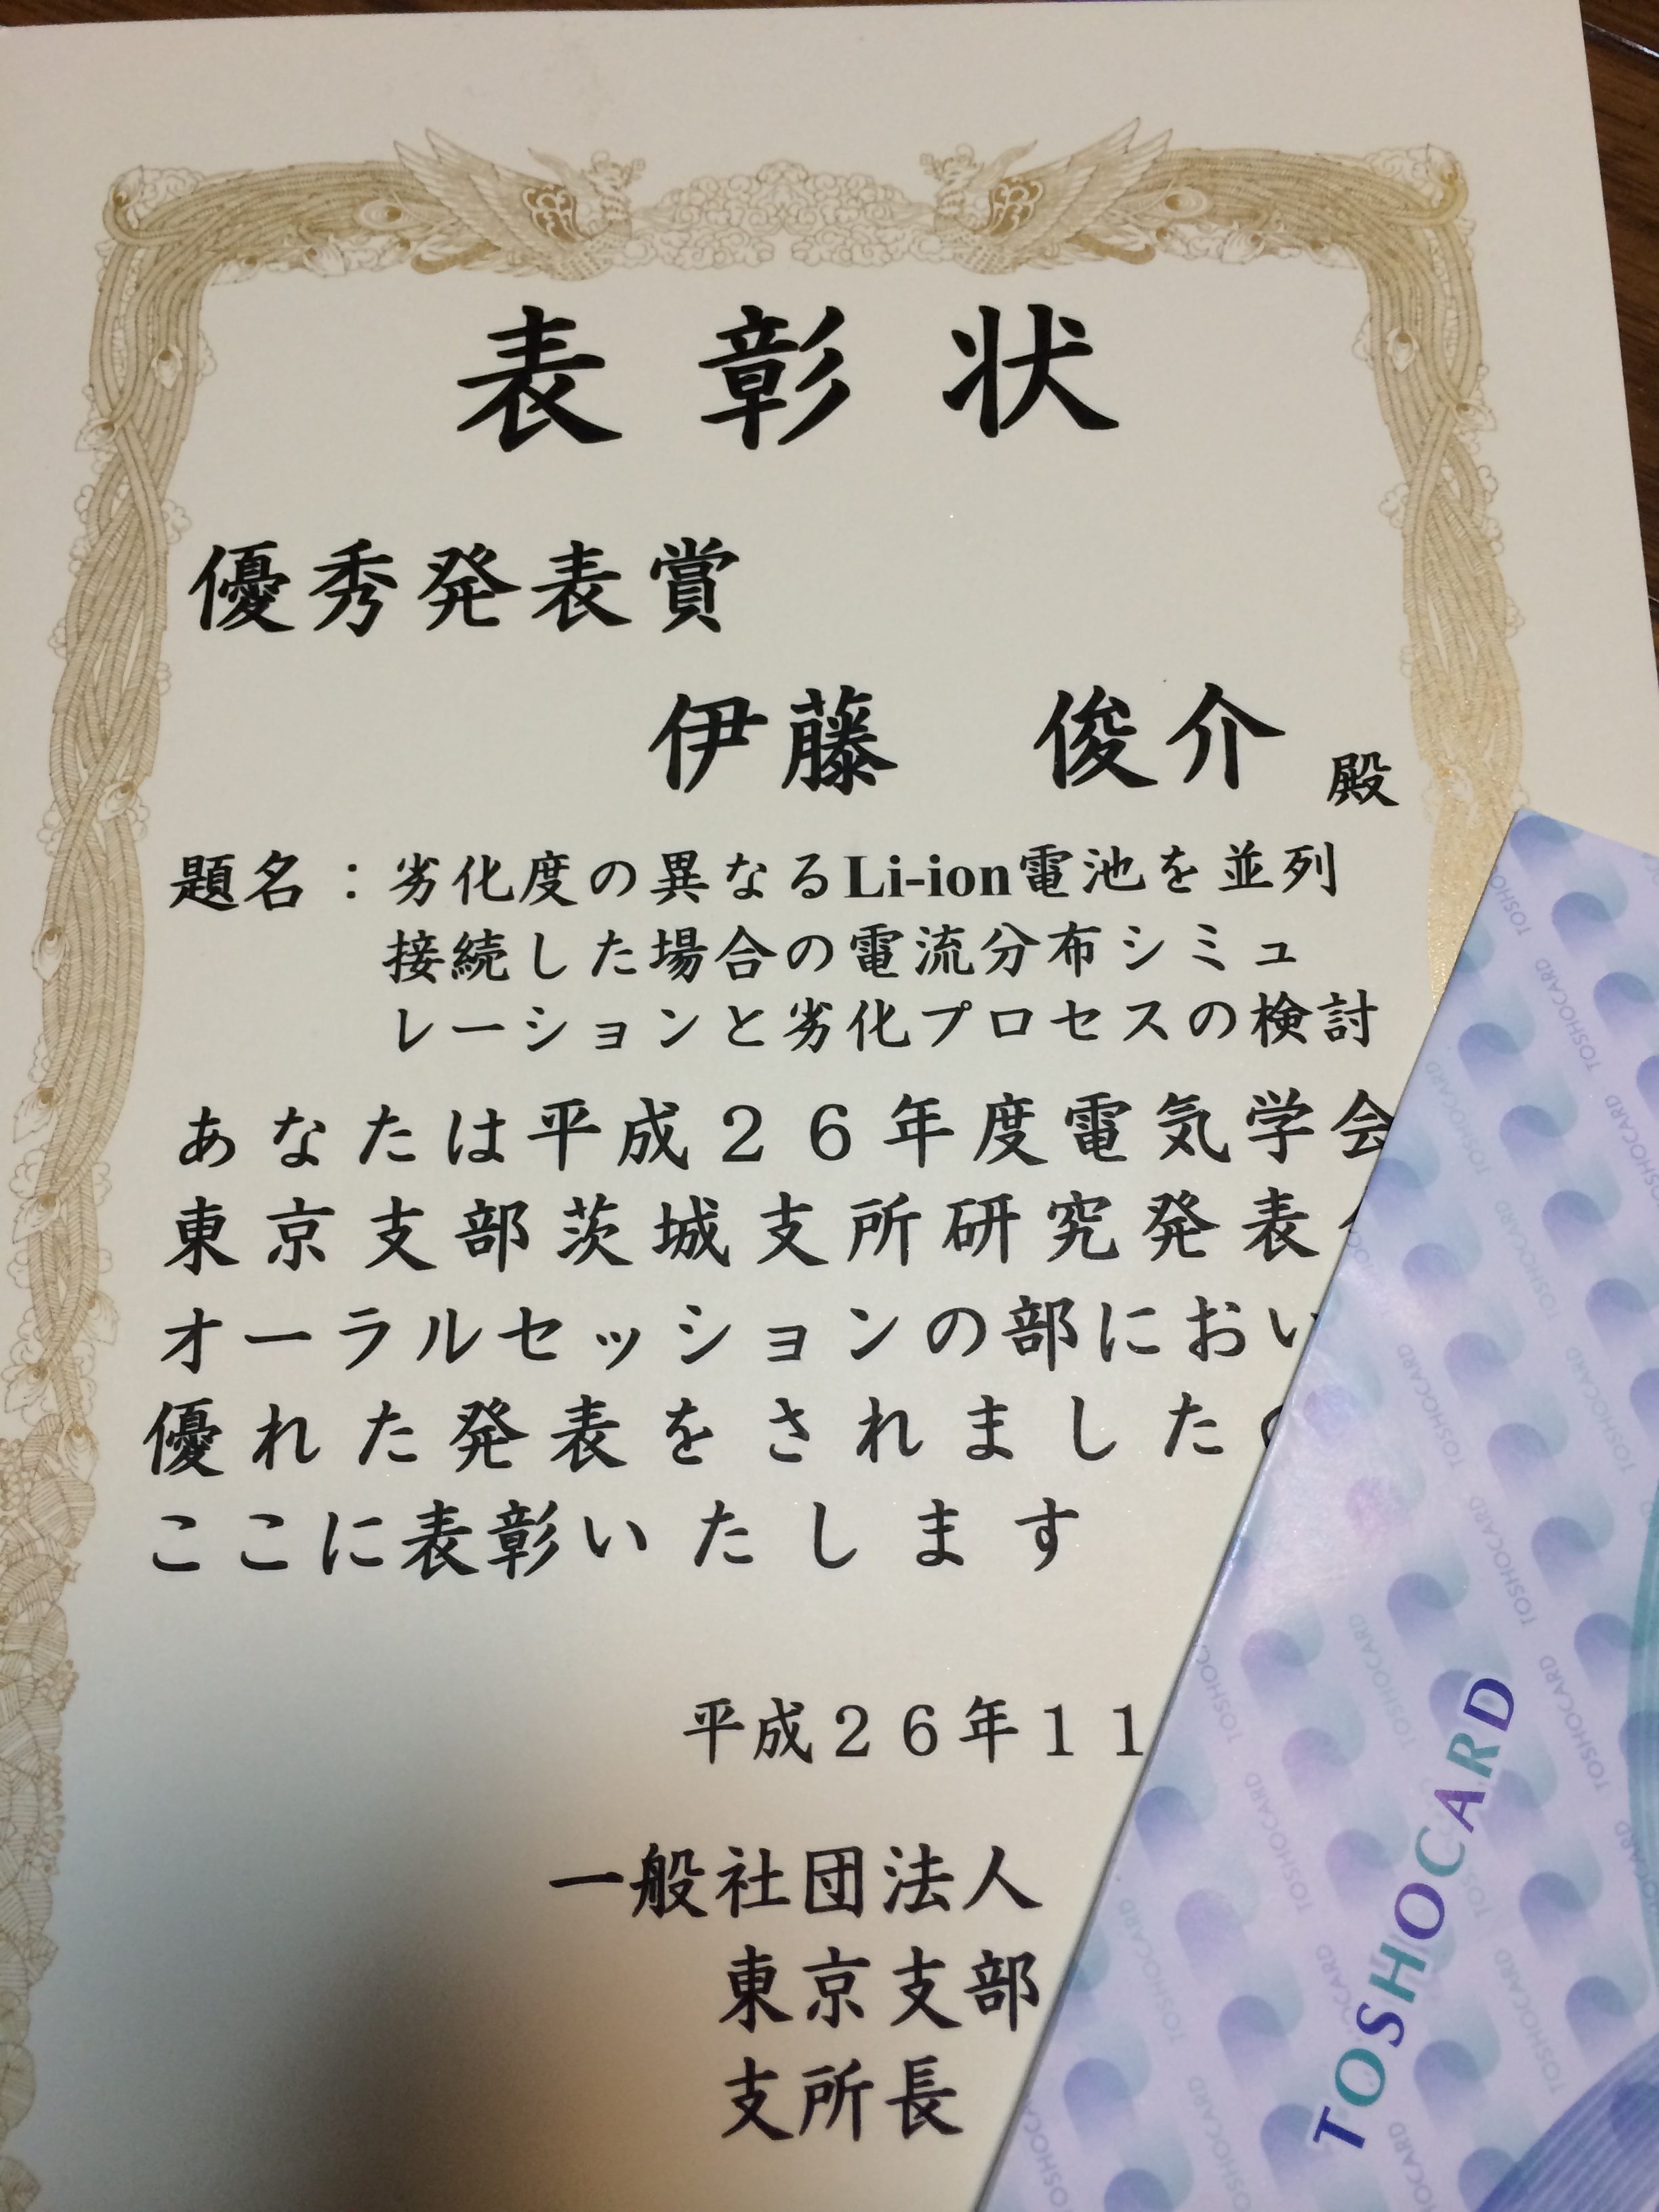 表彰状
優秀発表賞
伊藤 俊介 殿
題名:劣化度の異なるLi-ion電池を並列
接続した場合の電流分布シミュ
レーションと劣化プロセスの検討
あなたは平成26年度電気学会
東京支部茨城支所研究発表
オーラルセッションの部におい
優れた発表をされました
ここに表彰いたします
平成26年11
一般社団法人
東京支部
支所長
TOSHOCARD